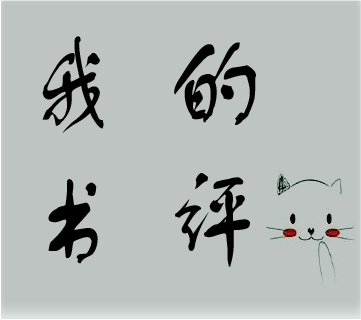 我的
书评